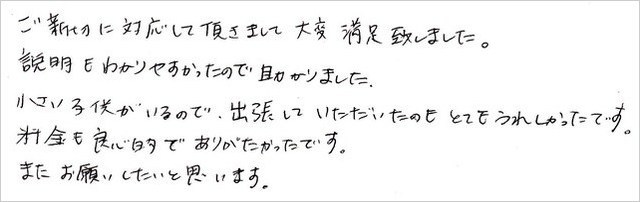 ご親切に対応して頂きまして大変満足致しました。
説明もわかりやすかったので助かりました.
小さい子供がいるので、出張していただいたのもとてもうれしかったです。
料金も良心的でありがたかったです。
またお願いしたいと思います。